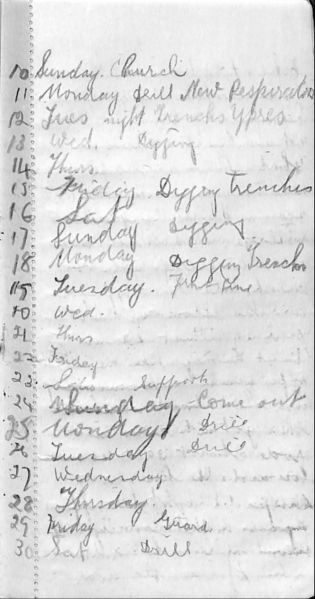 10 Sunday. Church
11 Monday drill New Respirators
12 Tues night Trenches Ypres
13 Wed. Digging
14 Thurs
15 Friday Digging Trenches
16 Sat
17 Sunday Digging
18 Monday Digging Trenches
19 Tuesday. Fire Line
20 Wed.
21 Thurs
22 Friday
23 Sat Supports
24 Sunday Come out
25 Monday Drill
26 Tuesday Drill
27 Wednesday
28 Thursday
29 Friday Guard
30 Sat Drill